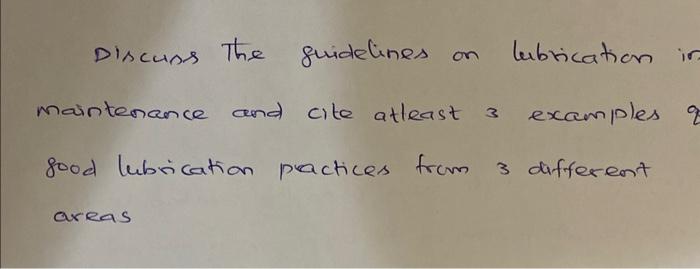 Discuss The guidelines on lubrication in
maintenance and cite atleast 3 examples
good lubrication practices from 3 different
areas